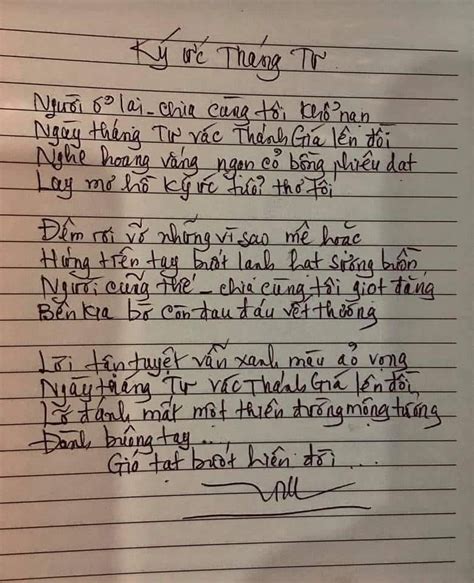 Ký ức Tháng Tư
Người ở lại - chia cùng tôi khổ nạn
Ngày tháng Tư vác Thánh Giá lên đồi
Nghe hoang vắng ngọn cỏ bồng phiêu dạt
Lay mơ hồ ký ức tuổi thơ tôi
Đêm rơi vỡ những vì sao mê hoặc
Hứng trên tay buốt lạnh hạt sương buồn
Người cũng thế - chia cùng tôi giọt đắng
Bên kia bờ còn đau dấu vết thương
Lời tận tuyệt vẫn xanh màu ảo vọng
Ngày tháng Tư vác Thánh Giá lên đồi
Lỡ đánh mất một thiên đường mộng tưởng
Đành buông tay ...
Gió tạt buốt hiên đời ...